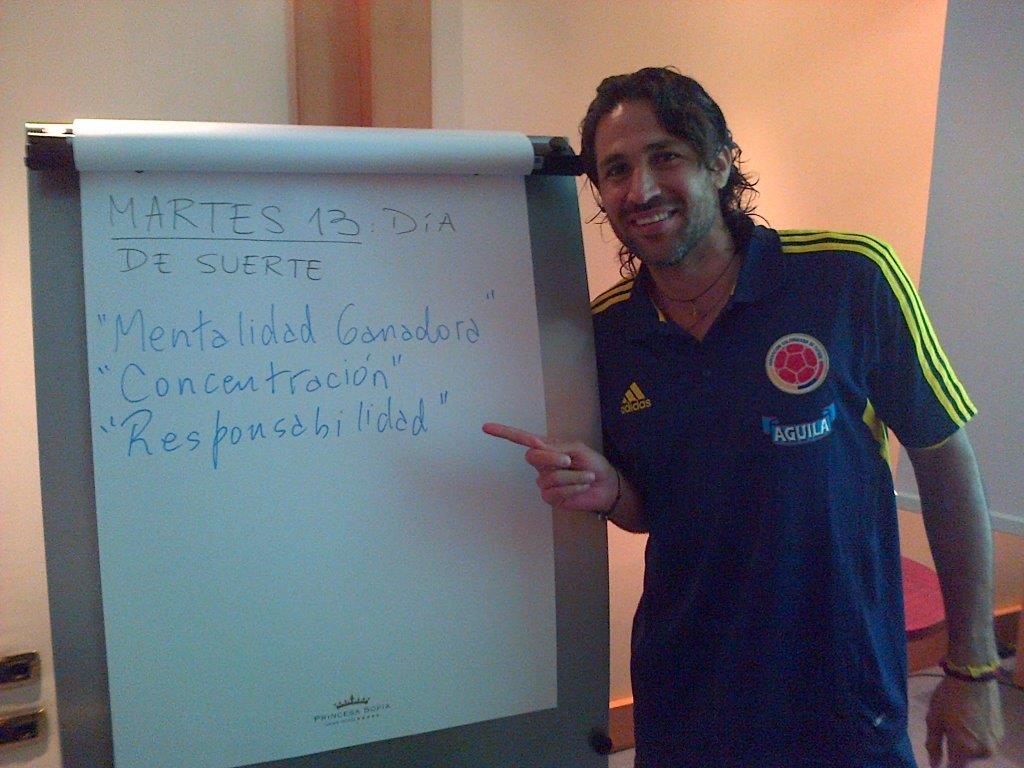 MARTES 13: DíA
DE SUERTE
"Mentalidad Ganadora"
"Concentración"
"Responsabilidad"
adidas
AGUILA
PRINCESA SOFIA